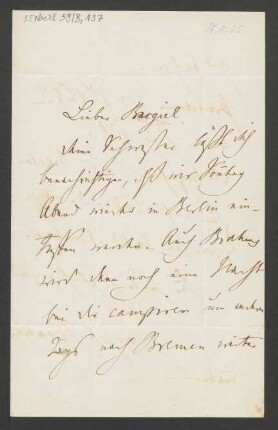 55 Nachl 5918, 137
Lieber Bargiel
Deine Schwester läßt dich
benachrichtigen, daß wir Sonntag
Abend wieder in Berlin ein-
treffen werden. Auch Brahms
wird dann noch eine Nacht
bei dir campiren um andern
Tags nach Bremen weiter